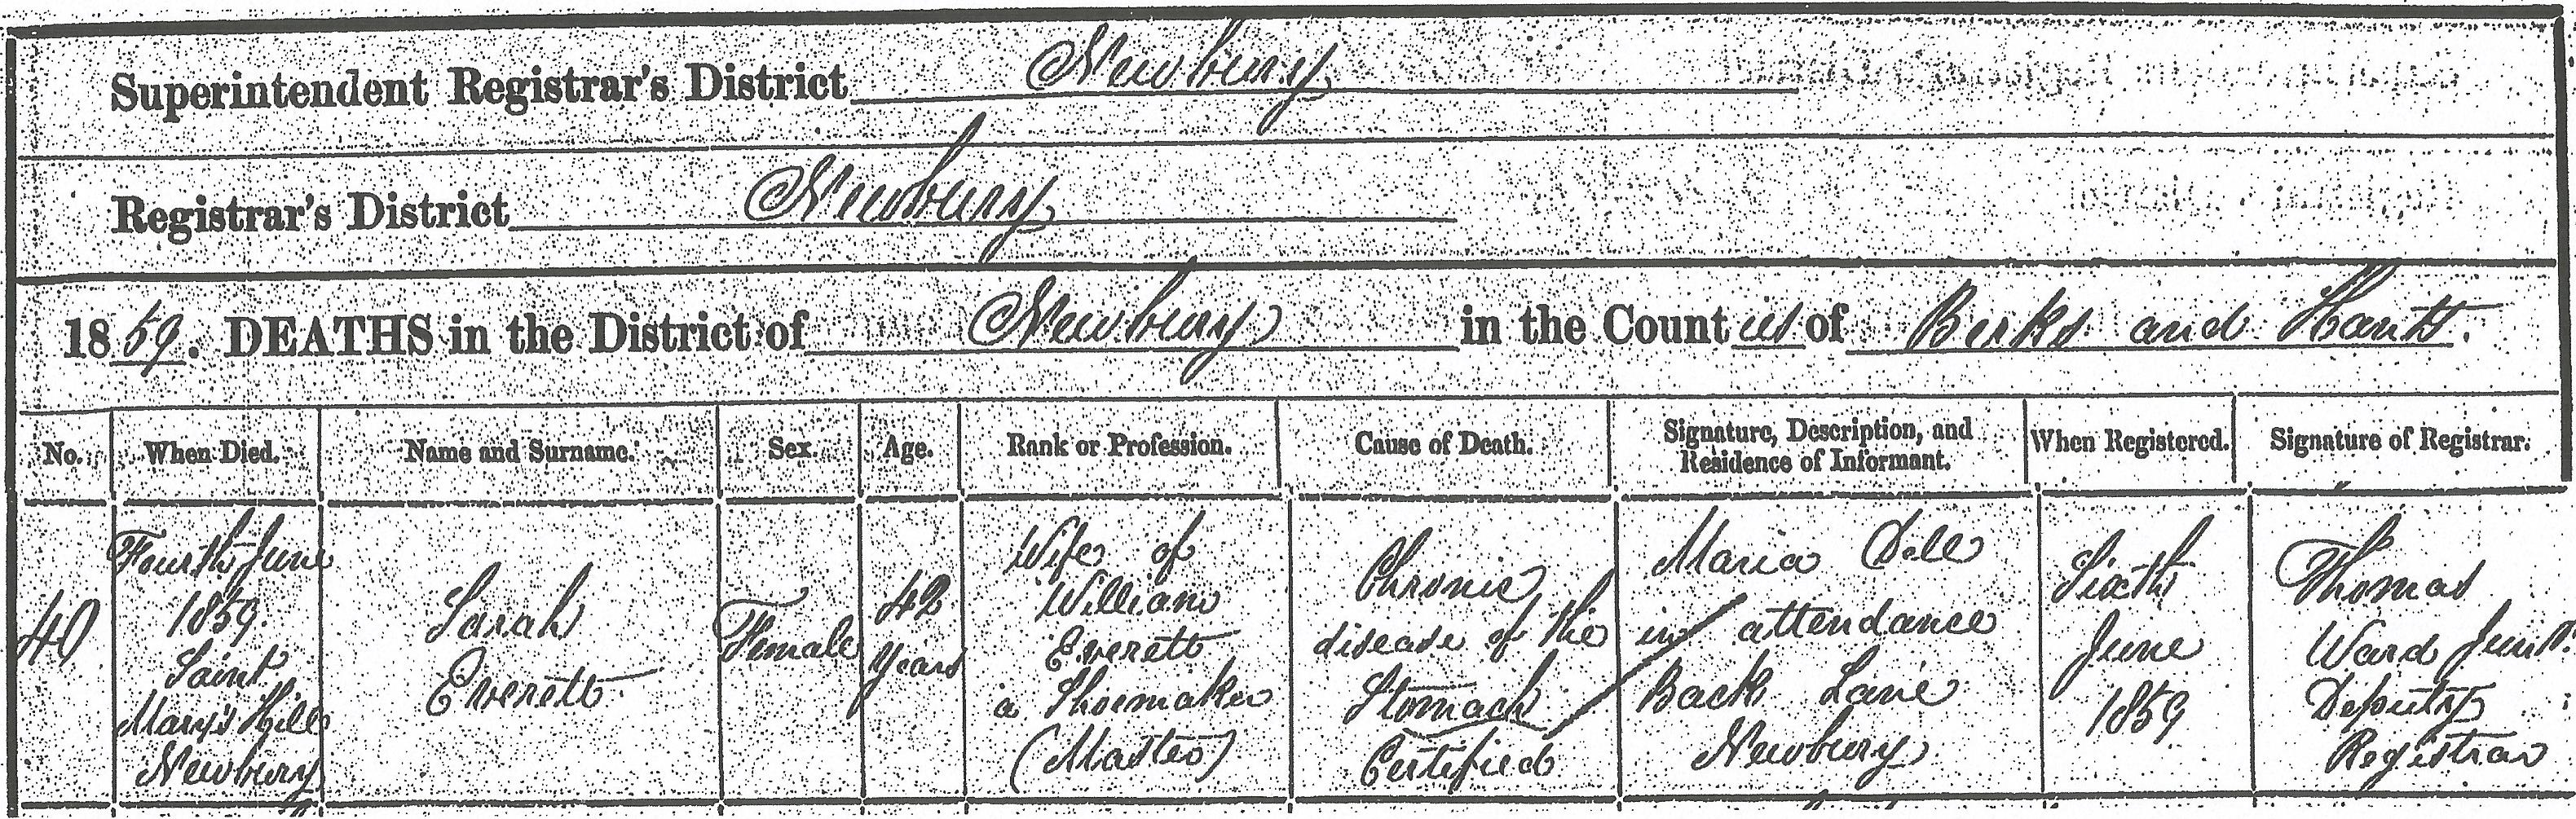 Superintendent Registrar's District Newbury
Registrar's District Newbury
1859. DEATHS in the District of Newbury in the Counties of Berks and Hants.
No.
When Died.
Name and Surname.
Sex.
Age.
Rank or Profession.
Cause of Death.
Signature, Description, and
Residence of Informant.
When Registered.
Signature of Registrar.
40
Fourth June
1859.
Saint
Mary's Hill
Newbury
Sarah
Everett
Female
42
Years
Wife of
William
Everett
a Shoemaker
(Master)
Chronic
disease of the
Stomach
Certified
Maria Dell
in attendance
Back Lane
Newbury
Sixth
June
1859
Thomas
Ward Junr.
Deputy
Registrar